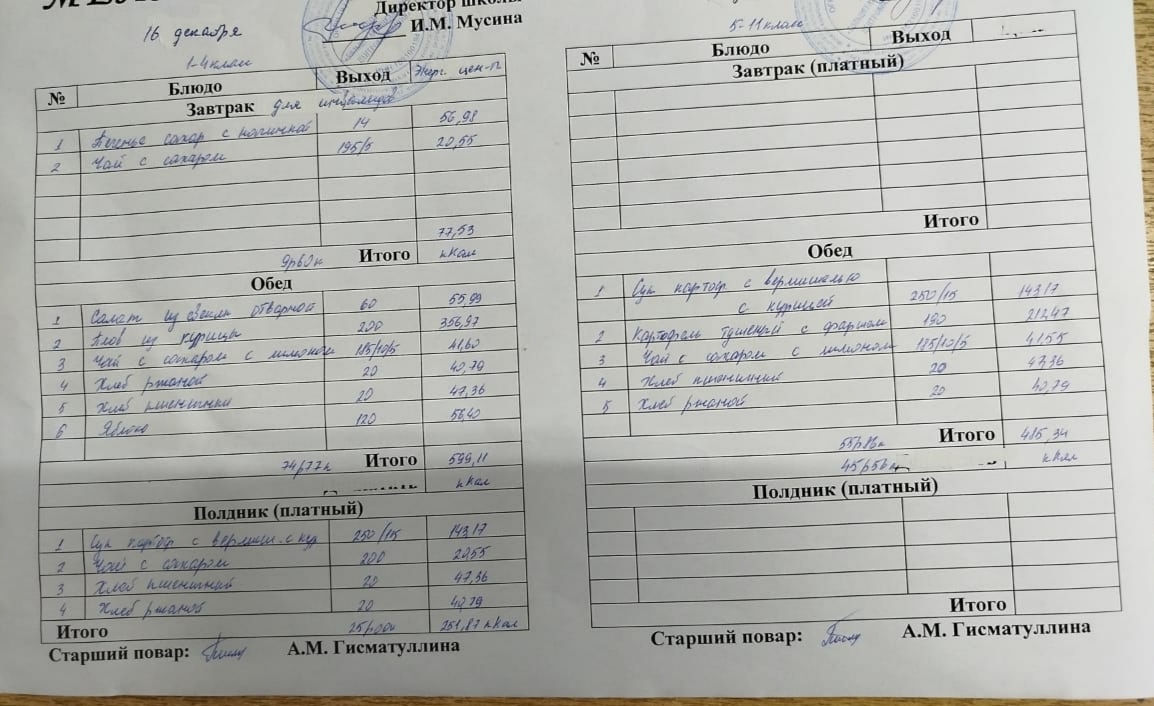 Директор школы
И.М. Мусина
16 декабря
1-4 класс
№ Блюдо Выход Энерг. цен-ть
Завтрак для инвалидов
1 Печенье сахар с начинкой 14 56,98
2 Чай с сахаром 195/5 20,55
77,53
9р60к Итого кКал
Обед
1 Салат из свеклы отварной 60 55,99
2 Плов из курицы 200 356,97
3 Чай с сахаром с лимоном 185/10/5 41,60
4 Хлеб ржаной 20 40,79
5 Хлеб пшеничный 20 47,36
6 Яблоко 120 56,40
74р72к Итого 599,11
кКал
Полдник (платный)
1 Суп картоф с вермиш. с кур 250/15 143,17
2 Чай с сахаром 200 20,55
3 Хлеб пшеничный 20 47,36
4 Хлеб ржаной 20 40,79
Итого 25р00к 251,87 кКал
Старший повар: А.М. Гисматуллина
5-11 класс
№ Блюдо Выход
Завтрак (платный)
Итого
Обед
1 Суп картоф с вермишелью
с курицей 250/15 143,17
2 Картофель тушеный с фаршем 190 212,47
3 Чай с сахаром с лимоном 185/10/5 41,55
4 Хлеб пшеничный 20 47,36
5 Хлеб ржаной 20 40,79
55р83к Итого 485,34
45р56к кКал
Полдник (платный)
Итого
Старший повар: А.М. Гисматуллина